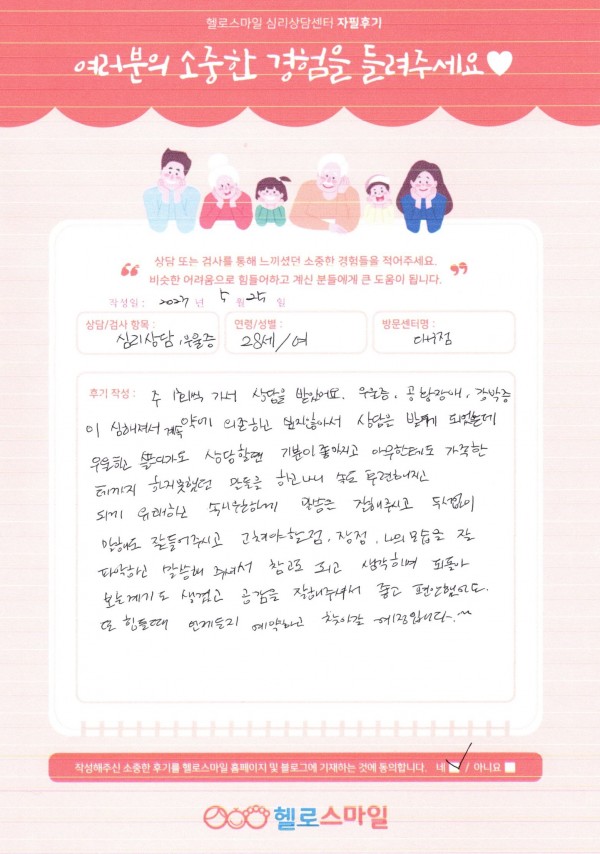 헬로스마일 심리상담센터 자필후기
여러분의 소중한 경험을 들려주세요♥
상담 또는 검사를 통해 느끼셨던 소중한 경험들을 적어주세요.
비슷한 어려움으로 힘들어하고 계신 분들에게 큰 도움이 됩니다.
작성일 : 2023 년 5 월 25 일
상담/검사 항목 : 심리상담, 우울증
연령/성별 : 28세/여
방문센터명 : 대구점
후기 작성 : 주 1회씩 가서 상담을 받았어요. 우울증, 공황장애, 강박증
이 심해져서 계속 약에 의존하긴 싫지않아서 상담은 받게 되었는데
우울하고 슬프다가도 상담할땐 기분이 좋아지고 아무한테도 가족한
테까지 하지못했던 말들을 하고나니 속도 후련해지고
되게 유쾌하신 속시원하게 말씀도 잘해주시고 두서없이
말해도 잘들어주시고 고쳐야할점, 장점, 나의 모습을 잘
파악하신 말씀해 주셔서 참고도 되고 생각하며 되돌아
보는계기도 생겼고 공감을 잘해주셔서 좋고 편안했어요.
또 힘들때 언제든지 예약하고 찾아갈 예정입니다.^^
작성해주신 소중한 후기를 헬로스마일 홈페이지 및 블로그에 기재하는 것에 동의합니다. 네 ✓ / 아니요
헬로스마일